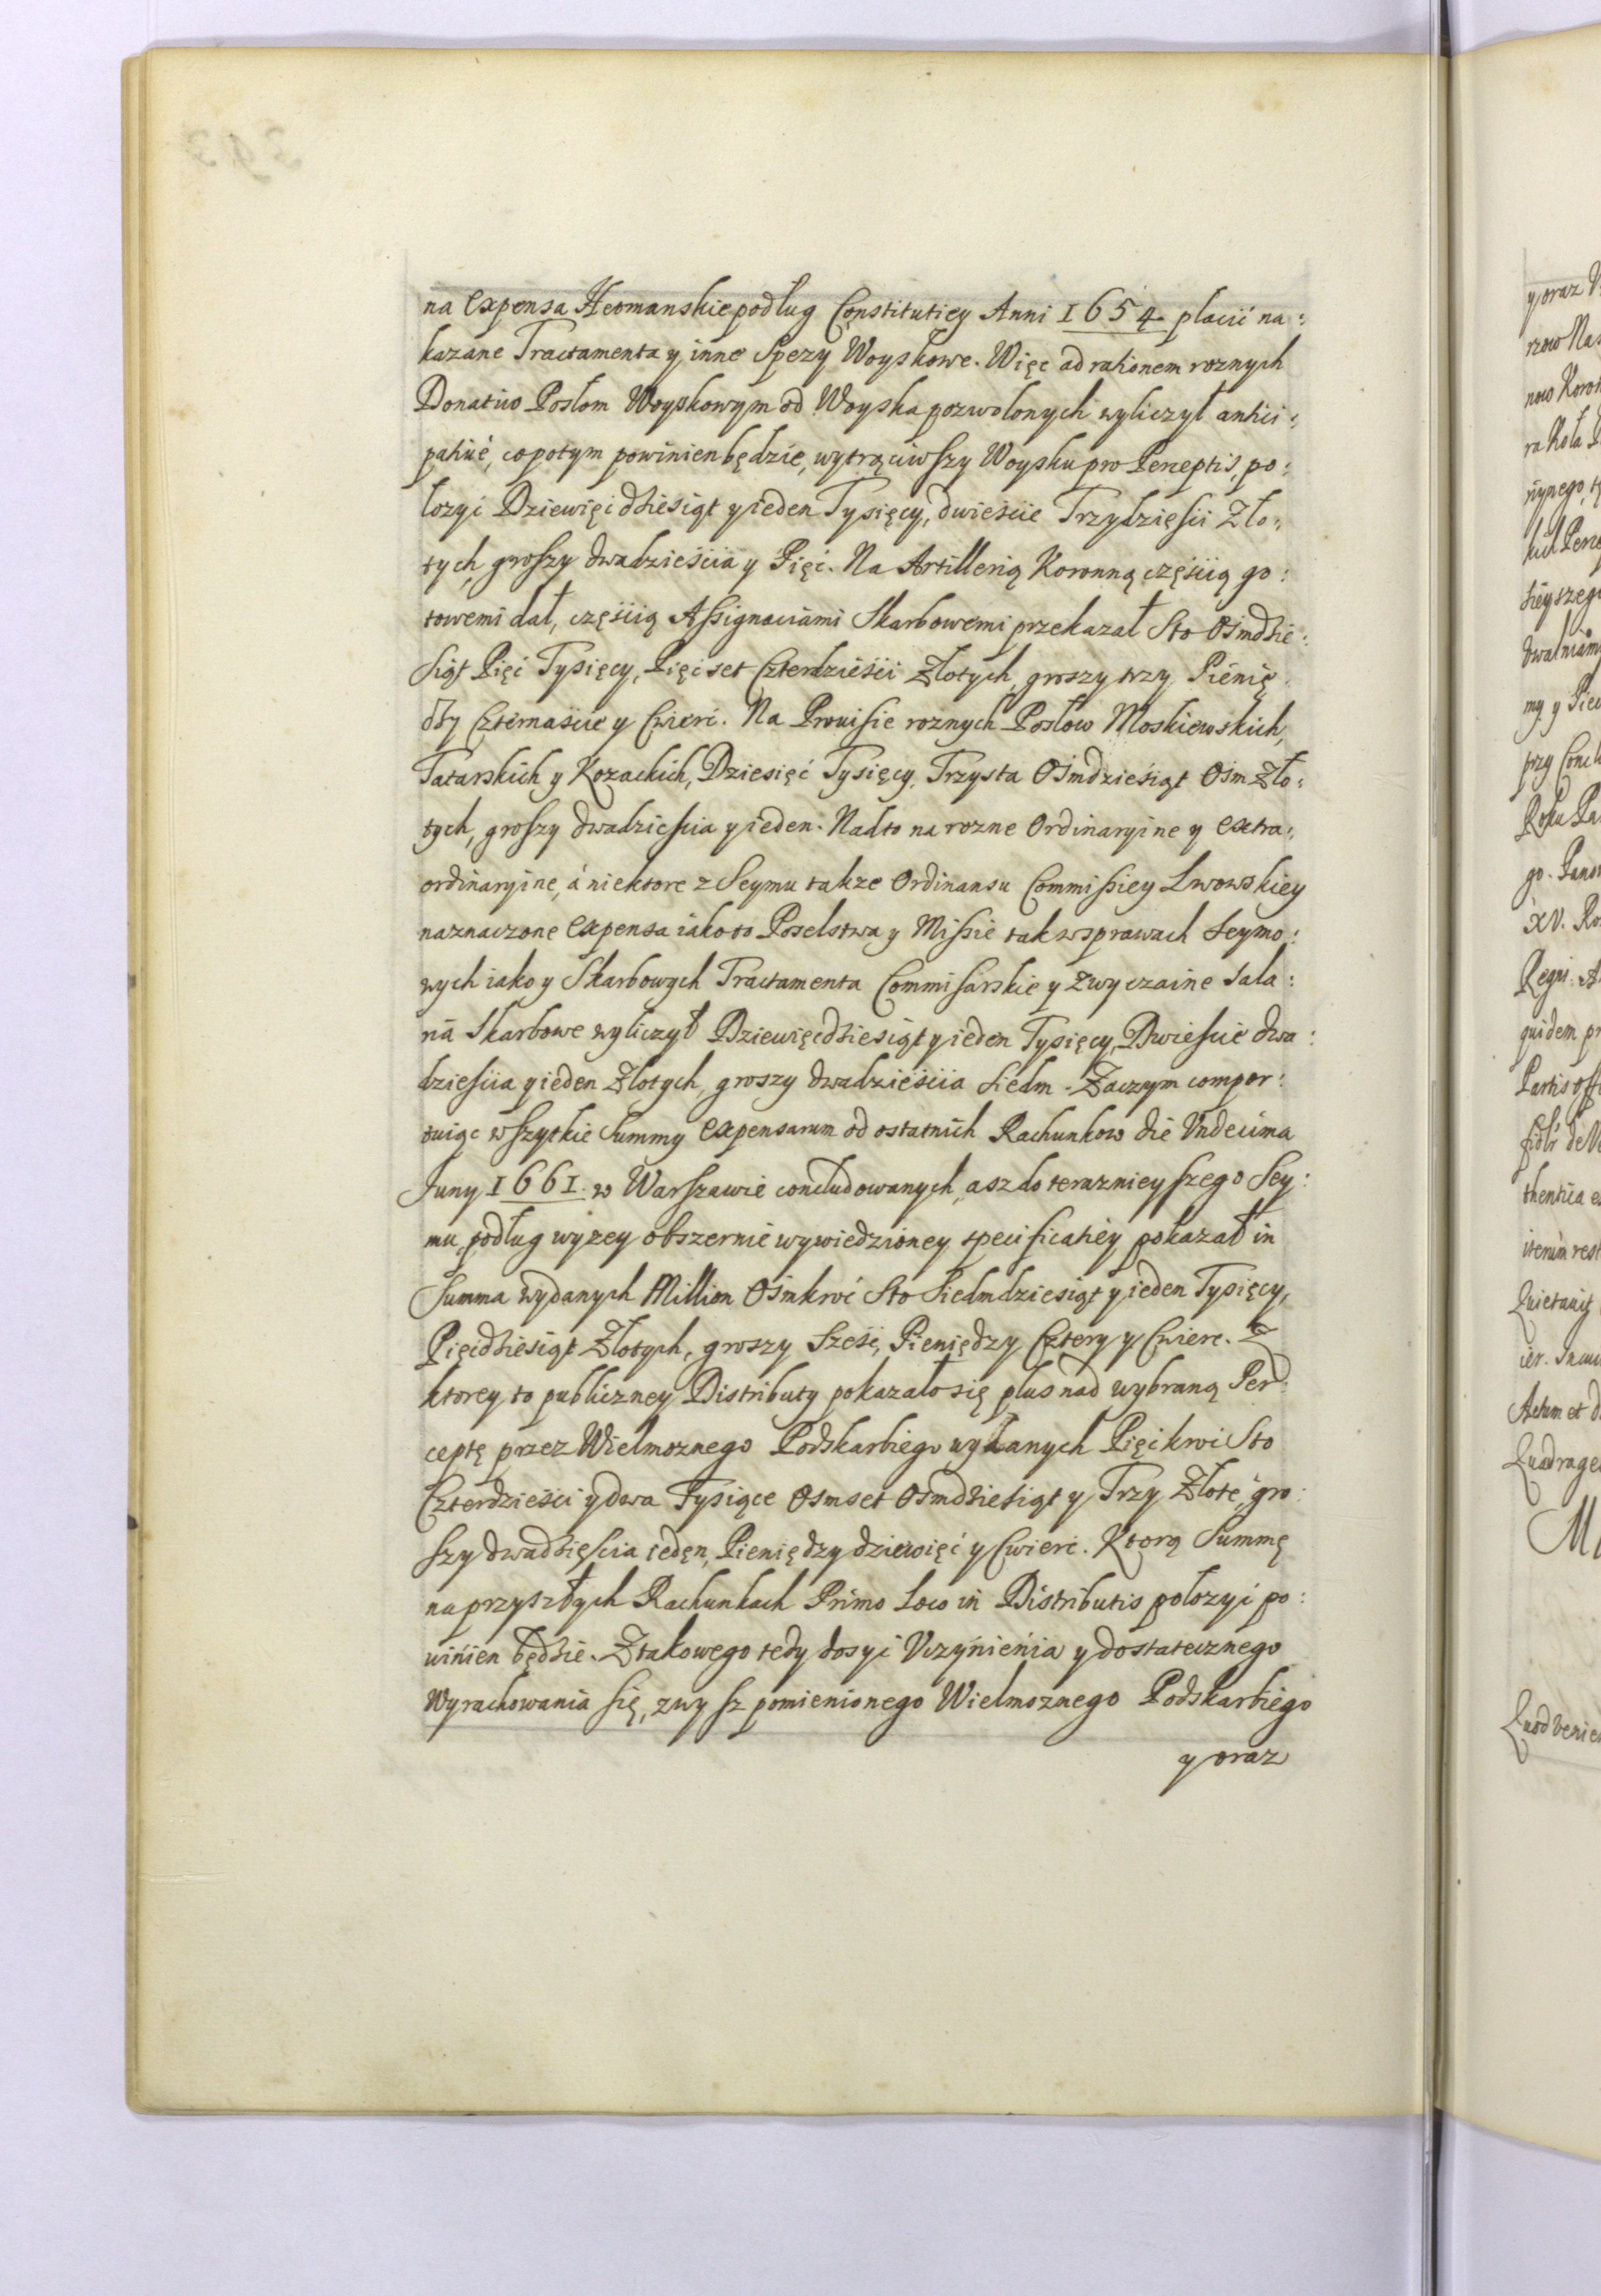 na Expensa Hetmanskie podług Constitutiey Anni 1654 płacić na:
kazane Tractamenta y inne Spezy Woyskowe. Więc ad rationem roznych
Donatiuo Posłom Woyskowym od Woyska pozwolonych wyliczył antici:
patiué, co potym powinien będzie, wytrąciwszy Woysku pro Perceptis, po:
łozyć Dziewięćdziesiąt y ieden Tysięcy, dwieście Trzydzieści Zło:
tych, groszy dwadzieścia y Pięć. Na Artillerią Koronną częścią go:
towemi dał, częścią Assignaciami Skarbowemi przekazał Sto Ośmdzie:
siąt Pięć Tysięcy, Pięćset Czterdzieści Złotych, groszy trzy Pienię
dzy Czternaście y Cwierć. Na Prouisie roznych Posłow Moskiewskich,
Tatarskich y Kozackich, Dziesięć Tysięcy, Trzysta Ośmdziesiąt Ośm Zło:
tych, groszy dwadziescia y ieden. Nadto na rozne Ordinaryine y extra:
ordinaryine, á niektore z Seymu takze Ordinansu Commissiey Lwowskiey
naznaczone Expensa iako to Poselstwa y Missie tak w sprawach Seymo:
wych iako y Skarbowych Tractamenta Commisarskie y zwyczaine Sala:
ria Skarbowe wyliczył Dziewięćdziesiąt y ieden Tysięcy, Dwieście dwa:
dzieścia y ieden Złotych, groszy dwadzieścia Siedm. Zaczym compor:
tuiąc wszytkie Summy Expensarum od ostatnich Rachunkow die Vndecima
Juny 1661. w Warszawie concludowanych, asz do teraznieyszego Sey:
mu, podług wyzey obszernie wywiedzioney specificatiey pokazał in
Summa wydanych Million Ośmkroć Sto Siedmdziesiąt y ieden Tysięcy,
Pięćdziesiąt Złotych, groszy Sześć, Pieniędzy Cztery y Cwierc. Z
ktorey to publiczney Distributy pokazało się plus nad wybraną Per:
ceptę przez Wielmoznego Podskarbiego wydanych Pięćkroć Sto
Czterdzieści y dwa Tysiące Osmset Ośmdziesiąt y Trzy Złote, gro:
szy dwadzieścia ieden, Pieniędzy dziewięć y Cwierć. Ktorą Summę
na przyszłych Rachunkach Primo Loco in Distributis połozyć po:
winien będzie. Z takowego tedy dosyć Vczynienia y dostatecznego
Wyrachowania się, zwysz pomienionego Wielmoznego Podskarbiego
y oraz